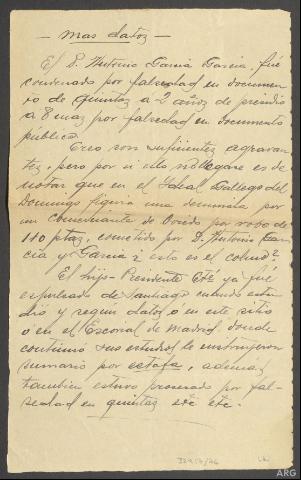 — mas datos —
El D. Antonio Garcia Garcia, fué
condenado por falsedad en documen
to de quintas a 2 años de presidio
a 8 mas por falsedad en documento
público
Creo son suficientes agravan
tes, pero por si ello no llegare es de
notar que en el Ideal Gallego del
Domingo figura una denuncia por
un comerciante de Oviedo por robo de
110 ptas, cometido por D. Antonio Gar
cia y Garcia ¿esto es el colmo?
El hijo-Presidente Eté ya fué
expulsado de Santiago cuando estu
dio y según datos o en este sitio
o en el Escorial de Madrid donde
continuó sus estudios le instruyeron
sumario por estafa, además
tambien estuvo procesado por fal-
sedad en quintas etc etc.
ARG